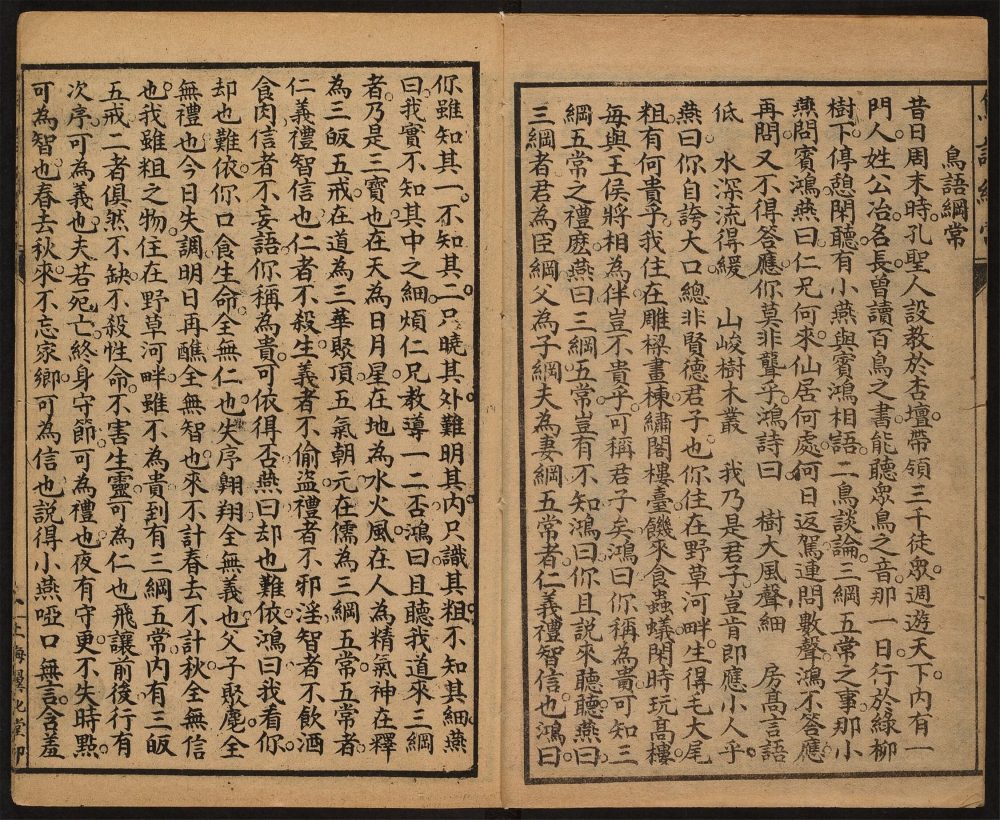 鳥語綱常
昔日周末時。孔聖人設教於杏壇。帶領三千徒衆。週遊天下。内有一
門人。姓公冶。名長。曾讀百鳥之書。能聽衆鳥之音。那一日。行於綠柳
樹下。停憩閑聽。有小燕與賓鴻相語。二鳥談論。三綱五常之事。那小
燕問賓鴻。燕曰。仁兄何來。仙居何處。何日返駕。連問數聲。鴻不答應
再問又不得答應。你莫非聾乎。鴻詩曰　樹大風聲細　房高言語
低　水深流得緩　山峻樹木叢　我乃是君子。豈肯即應小人乎
燕曰。你自誇大口。總非賢德君子也。你住在野草河畔。生得毛大尾
粗。有何貴乎。我住在雕樑畫棟。繡閣樓臺。饑來食蟲蟻。閑時玩高樓
每與王侯將相為伴。豈不貴乎。可稱君子矣。鴻曰。你稱為貴。可知三
綱五常之禮麽。燕曰。三綱五常。豈有不知。鴻曰。你且説來聽聽。燕曰
三綱者。君為臣綱。父為子綱。夫為妻綱。五常者。仁義禮智信也。鴻曰
你雖知其一。不知其二。只曉其外。難明其内。只識其粗。不知其細。燕
曰。我實不知其中之細。煩仁兄教導一二否。鴻曰。且聽我道來。三綱
者。乃是三寶也。在天為日月星。在地為水火風。在人為精氣神。在釋
為三皈五戒。在道為三華聚頂。五氣朝元。在儒為三綱五常。五常者
仁義禮智信也。仁者不殺生。義者不偷盜。禮者不邪淫。智者不飲酒
食肉。信者不妄語。你稱為貴。可依得否。燕曰。却也難依。鴻曰。我看你
却也難依。你口食生命。全無仁也。失序翱翔。全無義也。父子聚麀。全
無禮也。今日失調。明日再醮。全無智也。來不計春。去不計秋。全無信
也。我雖粗之物。住在野草河畔。雖不為貴。到有三綱五常。内有三皈
五戒。二者俱然不缺。不殺性命。不害生靈。可為仁也。飛讓前後。行有
次序。可為義也。夫若死亡。終身守節。可為禮也。夜有守更。不失時點。
可為智也。春去秋來。不忘家鄉。可為信也。説得小燕啞口無言。含羞
上海翼化堂印